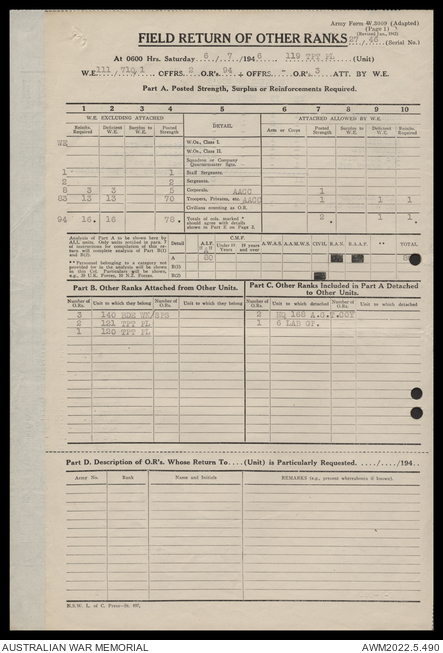 Army Form W.3009 (Adapted)
(Page 1)
(Revised Jan., 1942)
FIELD RETURN OF OTHER RANKS 27/46 (Serial No.)
At 0600 Hrs. Saturday 6 / 7 /1946 119 TPT PL (Unit)
W.E. 111 /710/1 OFFRS. 2 O.R's. 94 + OFFRS. - O.R's. 3 ATT. BY W.E.
Part A. Posted Strength, Surplus or Reinforcements Required.
1 2 3 4 5 6 7 8 9 10
W.E. EXCLUDING ATTACHED DETAIL ATTACHED ALLOWED BY W.E.
Reinfts. Required Deficient W.E. Surplus to W.E. Posted Strength Arm or Corps Posted Strength Surplus to W.E. Deficient W.E. Reinfts. Required
WE W.Os., Class I.
W.Os., Class II.
Squadron or Company Quartermaster Sgts.
1 1 Staff Sergeants.
2 2 Sergeants.
8 3 3 5 Corporals. AACC 1
83 13 13 70 Troopers, Privates, etc. AACC 1 1 1
Civilians counting as O.R.
94 16. 16 78. Totals of cols. marked * should agree with details shown in Part II on Page 2. 2 1 1
Analysis of Part A to be shown here by ALL units.
Detail A.I.F. C.M.F. Under 19 Years 19 years and over A.W.A.S. A.A.M.W.S. CIVIL R.A.N. R.A.A.F. ** TOTAL
A 80
B(i)
B(ii)
Part B. Other Ranks Attached from Other Units.
Part C. Other Ranks Included in Part A Detached to Other Units.
Number of O.Rs. Unit to which they belong Number of O.Rs. Unit to which they belong Number of O.Rs. Unit to which detached Number of O.Rs. Unit to which detached
3 140 BDE WK/SPS 2 HQ 168 A.G.T.COY
2 121 TPT PL 1 6 LAB GP.
1 120 TPT PL
Part D. Description of O.R's. Whose Return To....(Unit) is Particularly Requested...../...../194..
Army No. Rank Name and Initials REMARKS (e.g., present whereabouts if known).
AUSTRALIAN WAR MEMORIAL AWM2022.5.490